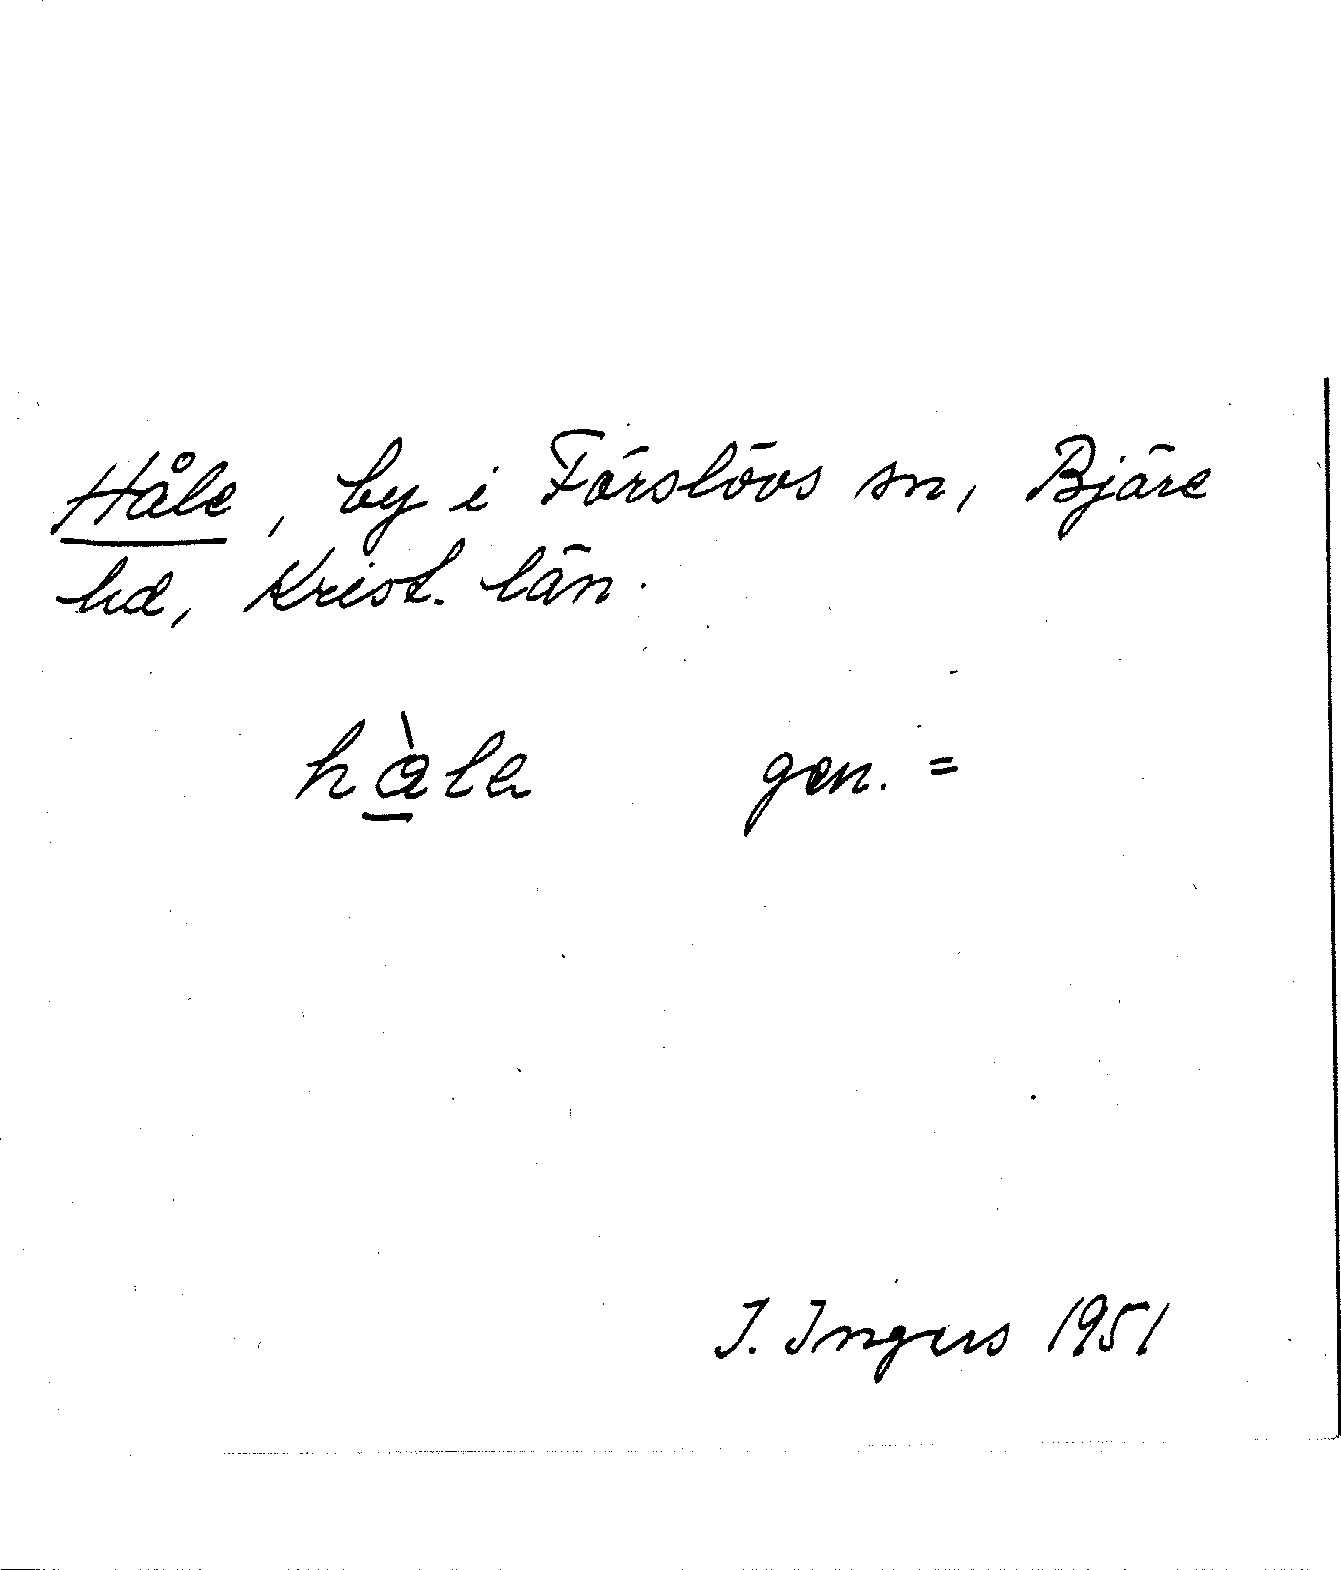 Håle, by i Förslövs sn, Bjäre
hd, Krist. län.
hàla gen. =
I. Ingers 1951